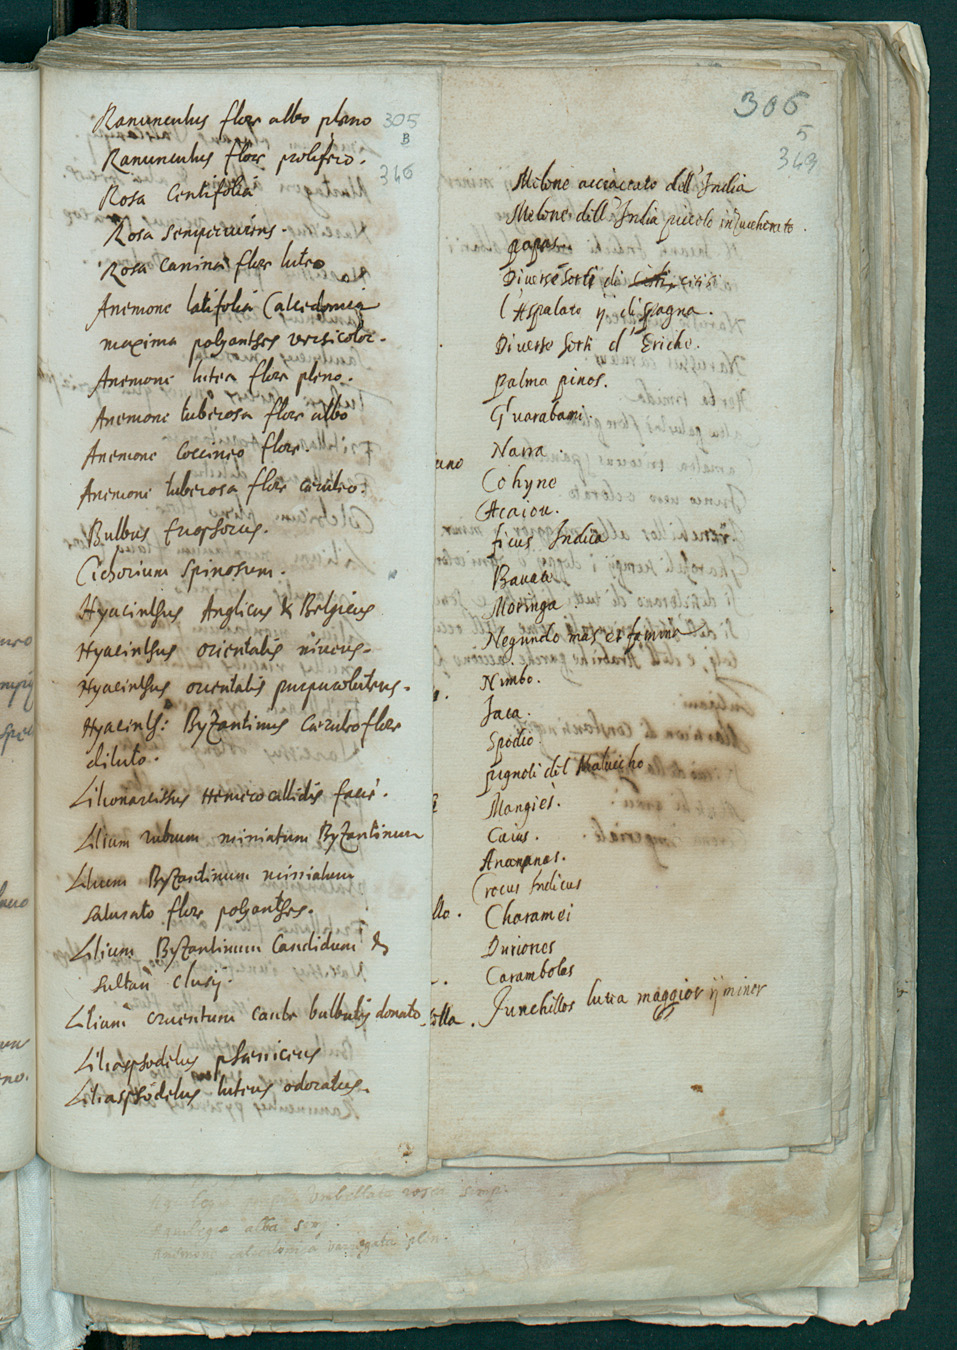 Ranunculus flore albo pleno
305
B
Ranunculus flore prolifero.
346
Rosa Centifolia
Rosa sempervirens.
Rosa canina flore luteo
Anemone latifolia Calcedonica
maxima polyanthes versicolor.
Anemone lutea flore pleno.
Anemone tuberosa flore albo
Anemone coccineo flore.
Anemone tuberosa flore ceruleo.
Bulbus Eriophorus.
Cichorium spinosum.
Hyacinthus Anglicus & Belgicus
Hyacinthus orientalis niveus.
Hyacinthus orientalis purpuroluteus.
Hyacinth: Byzantinus Caeruleo flore
diluto.
Lilionarcissus Hemerocallidis facie.
Lilium rubrum miniatum Byzantinum
Lilium Byzantinum miniatum
saturato flore polyanthes.
Lilium Byzantinum Candidum &
sultan Clusij.
Lilium cruentum caule bulbulis donato
Liliasphodelus phaeniceus
Liliasphodelus luteus odoratus.
306
5
349
Melone acciaccato dell'India
Melone dell'India piccolo inzuccherato.
papas
Diverse sorti di cisti
l'Aspalato ij di spagna.
Diverse sorti d'Eriche.
palma pinos.
Guarabami.
Narra.
Cohyne
Acaiou.
ficus Indica
Moringa
Negundo mas et femina
Nimbo.
Jaca.
Spodio.
pignoli del Maluccho
Mangies.
Caius.
Ananas.
Crocus Indicus
Charamei
Duriones
Carambolas
Junchillos lutea maggior ij minor